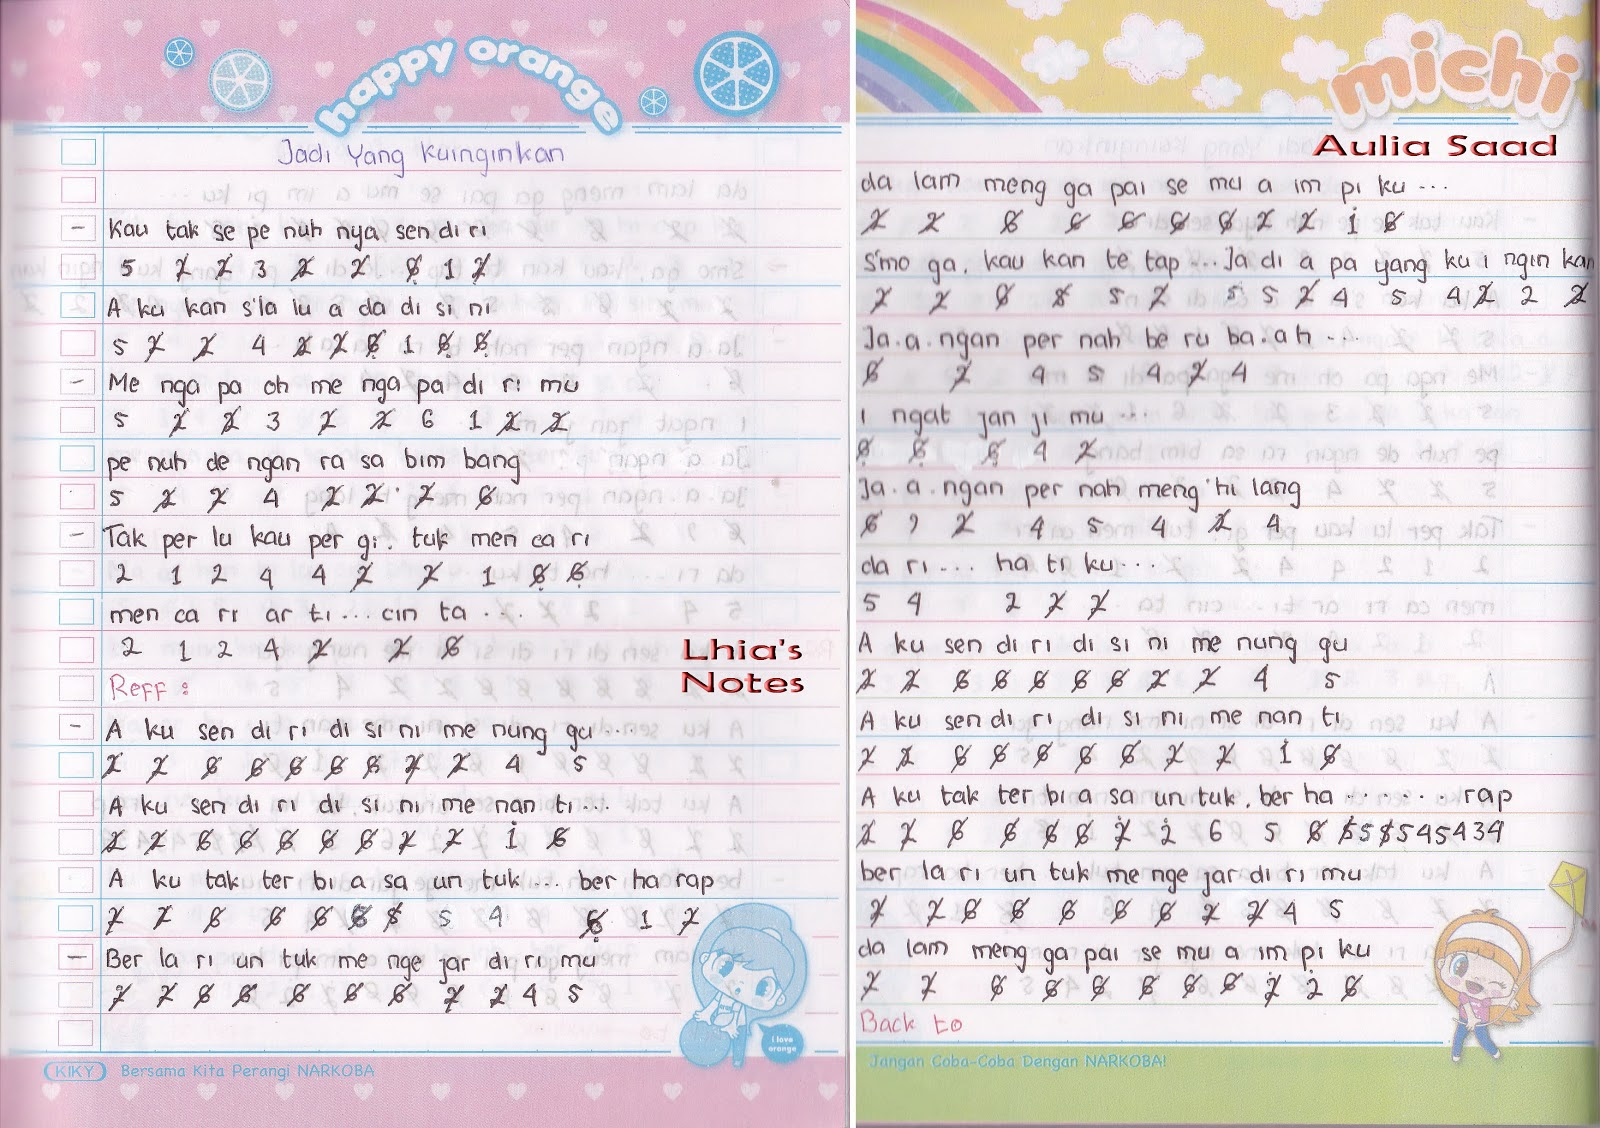 happy orange
Jadi Yang Kuinginkan
– Kau tak se pe nuh nya sen di ri
5 7̸ 2̸ 3 2̸ 2̸ 6̸ 1 7̸
A ku kan s'la lu a da di si ni
5 7̸ 7̸ 4 2̸ 7̸ 6̸ 1 6̸ 6̸
– Me nga pa oh me nga pa di ri mu
5 2̸ 2̸ 3 7̸ 7̸ 6 1 2̸ 2̸
pe nuh de ngan ra sa bim bang
5 2̸ 7̸ 4 2̸ 2̸ 7̸ 6̸
– Tak per lu kau per gi. tuk men ca ri
2 1 2 4 4 2̸ 7̸ 1 6̸ 6̸
men ca ri ar ti ... cin ta ...
2 1 2 4 2̸ 7̸ 6̸
Lhia's
Notes
Reff :
– A ku sen di ri di si ni me nung gu ....
2̸ 7̸ 6̸ 6̸ 6̸ 6̸ 6̸ 7̸ 2̸ 4 5
A ku sen di ri di si ni me nan ti ...
2̸ 7̸ 6̸ 6̸ 6̸ 6̸ 6̸ 7̸ 7̸ 1̇ 6̸
A ku tak ter bi a sa un tuk ... ber ha rap
7̸ 7̸ 6̸ 6̸ 6̸ 6̸ 5̸ 5 4 6̸ 1 7̸
– Ber la ri un tuk me nge jar di ri mu
7̸ 7̸ 6̸ 6̸ 6̸ 6̸ 6̸ 7̸ 2̸ 4 5
i love
orange
KIKY Bersama Kita Perangi NARKOBA
michi
Aulia Saad
da lam meng ga pai se mu a im pi ku ...
2̸ 2̸ 6̸ 6̸ 6̸ 6̸ 6̸ 2̸ 7̸ 1̇ 6̸
S'mo ga. kau kan te tap ... Ja di a pa yang ku i ngin kan
7̸ 7̸ 6̸ 6̸ 5 7̸ 5 5 2̸ 4 5 4 2̸ 2 2̸
Ja.a.ngan per nah be ru ba.ah ...
6̸ 7̸ 4 5 4 2̸ 4
i ngat jan ji mu ...
6̸ 6̸ 6̸ 4 7̸
Ja.a.ngan per nah meng'hi lang
6̸ 7̸ 4 5 4 2̸ 4
da ri .... ha ti ku ...
5 4 2 7̸ 7̸
A ku sen di ri di si ni me nung gu
2̸ 2̸ 6̸ 6̸ 6̸ 6̸ 6̸ 2̸ 7̸ 4 5
A ku sen di ri di si ni me nan ti
7̸ 2̸ 6̸ 6̸ 6̸ 6̸ 6̸ 7̸ 7̸ 1̇ 6̸
A ku tak ter bi a sa un tuk. ber ha ....... rap
7̸ 7̸ 6̸ 6̸ 6̸ 6̸ 2̸̇ 2̇ 6 5 6̸ 5̸ 5 5̸ 5 4 5 4 3 4
ber la ri un tuk me nge jar di ri mu
7̸ 7̸ 6̸ 6̸ 6̸ 6̸ 6̸ 2̸ 7̸ 4 5
da lam meng ga pai se mu a im pi ku
7̸ 7̸ 6̸ 6̸ 6̸ 6̸ 6̸ 6̸ 7̸̇ 2̇ 6̸
Back to
Jangan Coba-Coba Dengan NARKOBA!